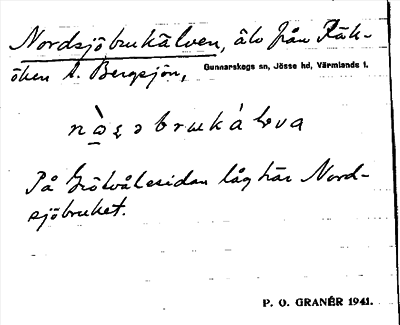 Nordsjöbrukälven, älv från Räk-
öken t. Bergsjön, Gunnarskogs sn, Jösse hd, Värmlands l.
På Grötvålesidan låg här Nord-
sjöbruket.
P. O. GRANÉR 1941.